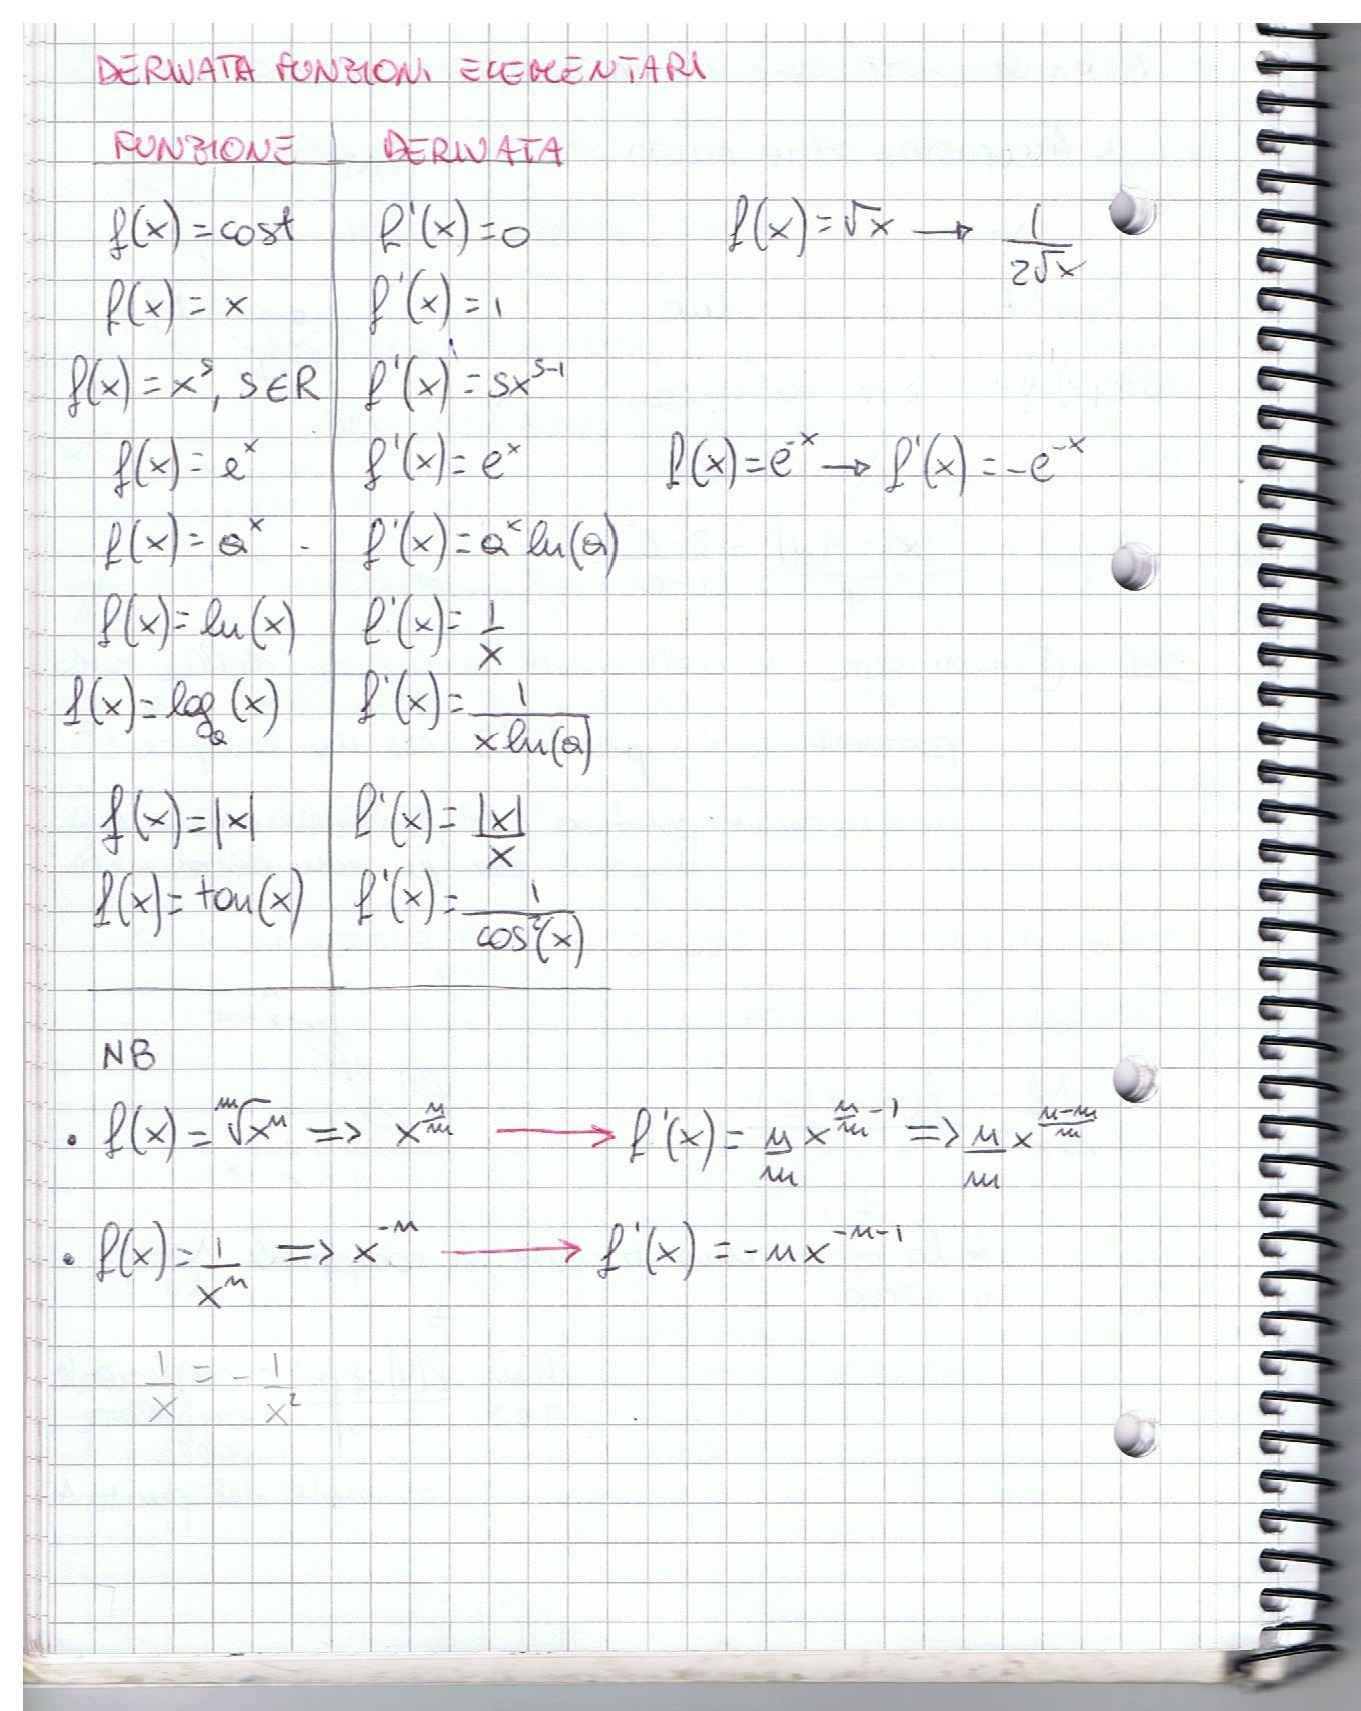 DERIVATA FUNZIONI ELEMENTARI
FUNZIONE DERIVATA
f(x) = cost f'(x) = 0 f(x) = √x → 1/(2√x)
f(x) = x f'(x) = 1
f(x) = x^s, s∈R f'(x) = sx^(s-1)
f(x) = e^x f'(x) = e^x f(x) = e^-x → f'(x) = -e^-x
f(x) = a^x f'(x) = a^x ln(a)
f(x) = ln(x) f'(x) = 1/x
f(x) = log_a(x) f'(x) = 1/(x ln(a))
f(x) = |x| f'(x) = |x|/x
f(x) = tan(x) f'(x) = 1/cos²(x)
NB
• f(x) = ᵐ√x^n => x^(n/m) → f'(x) = n/m x^(n/m -1) => n/m x^((n-m)/m)
• f(x) = 1/x^n => x^-n → f'(x) = -nx^(-n-1)
1/x = - 1/x²